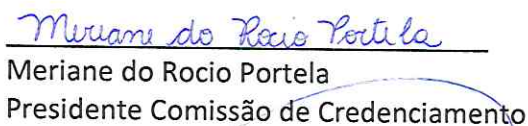 Meriane do Rocio Portela
Meriane do Rocio Portela
Presidente Comissão de Credenciamento